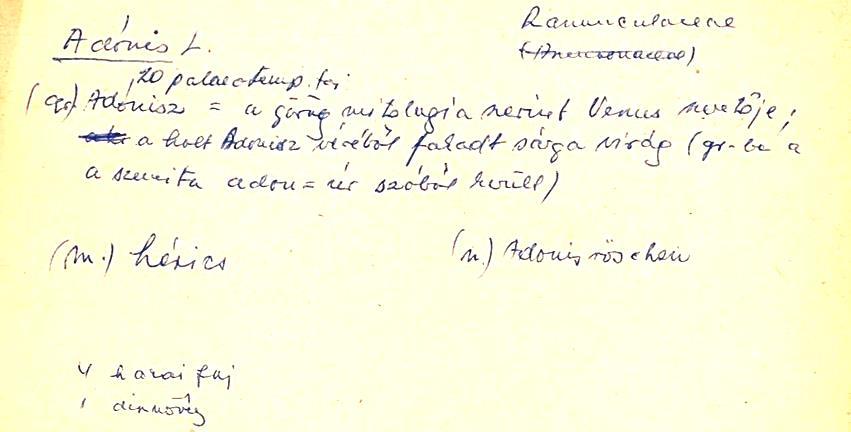 Ranunculaceae
Adónis L. (Anemonaceae)
20 palaeotemp. faj
(gr) Adónisz = a görög mitologia szerint Venus szeretője;
a holt Adonisz véréből fakadt sárga virág (gr-ba a
a szemita adon = úr szóból került)
(m.) hérics (n.) Adonisröschen
4 hazai faj
1 dísznövény